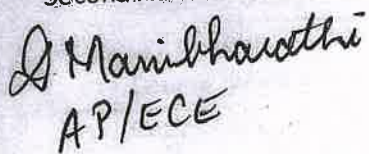 D Manibharathi
AP/ECE